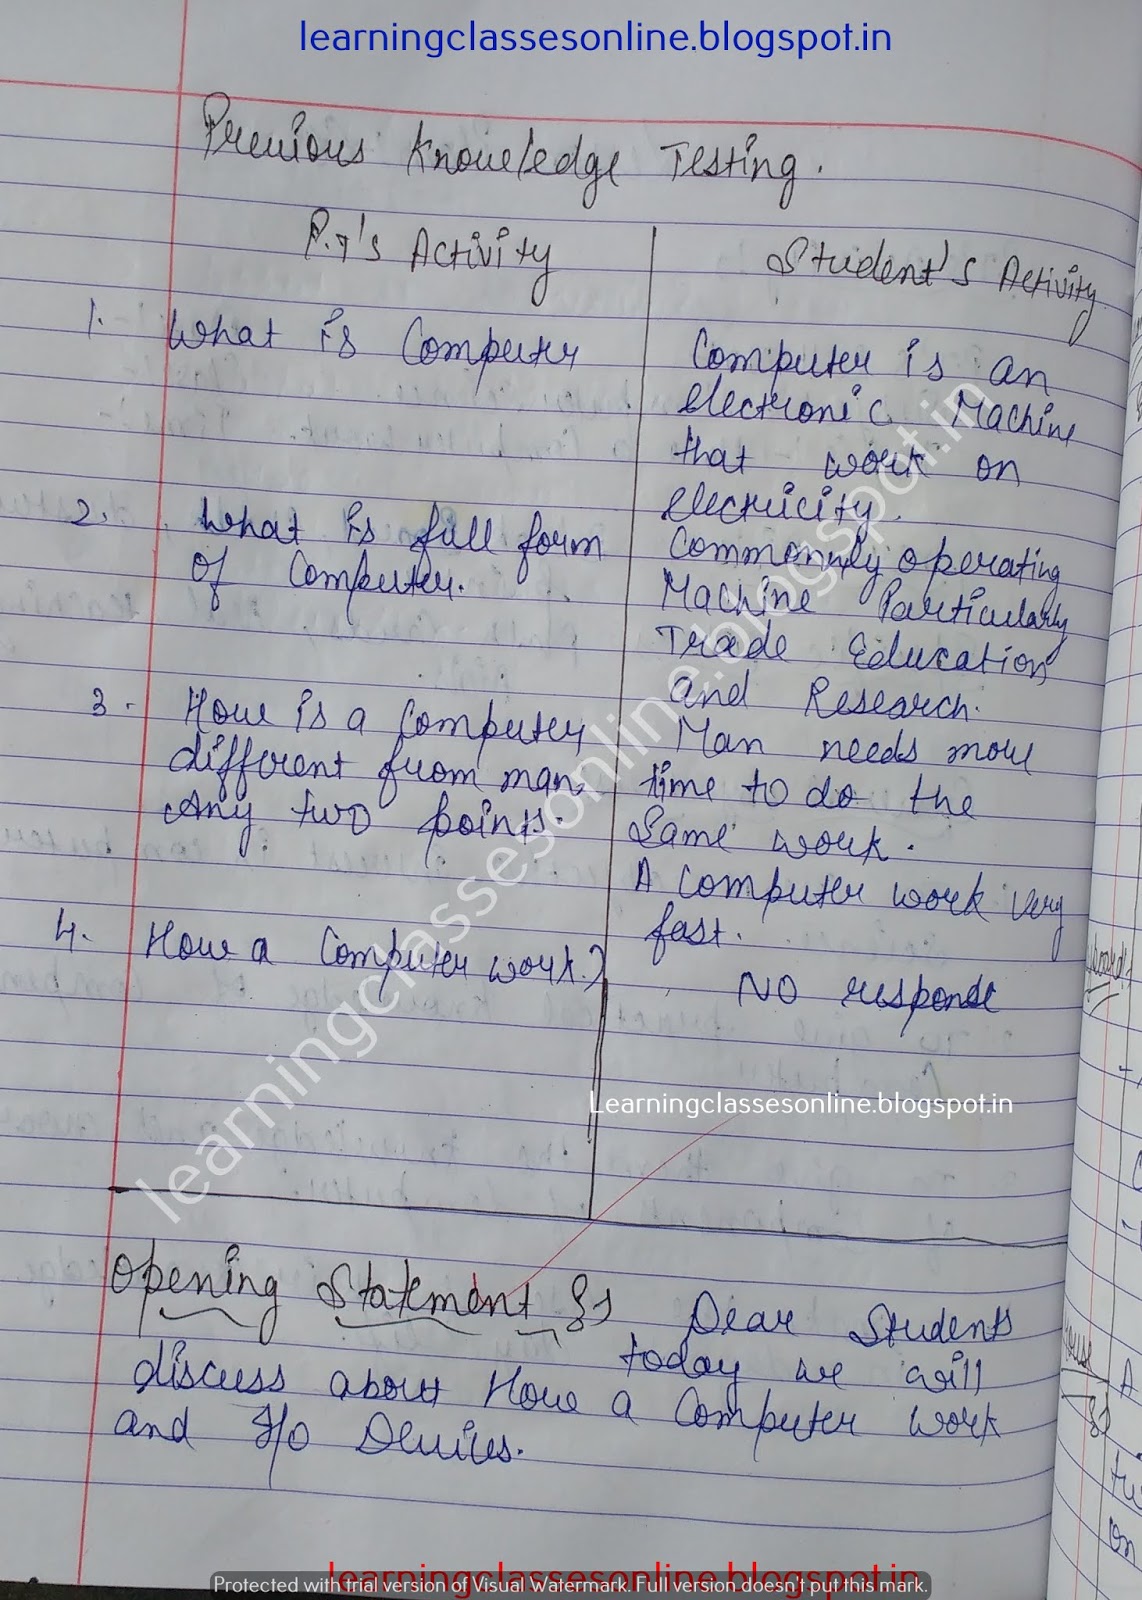 learningclassesonline.blogspot.in
Previous Knowledge Testing.
P.T's Activity
Student's Activity
1. What is Computer
Computer is an
electronic Machine
that work on
electricity.
2. What is full form
of Computer.
Commonnly operating
Machine Particularly
Trade Education
and Research.
3. How is a Computer
different from man,
Any two points.
Man needs more
time to do the
Same work.
A Computer work very
fast.
4. How a Computer work?
No response
learningclassesonline.blogspot.in
Learningclassesonline.blogspot.in
Opening Statement :- Dear Students
today we will
discuss about How a Computer work
and I/O Devices.
learningclassesonline.blogspot.in
Protected with trial version of Visual Watermark. Full version doesn't put this mark.